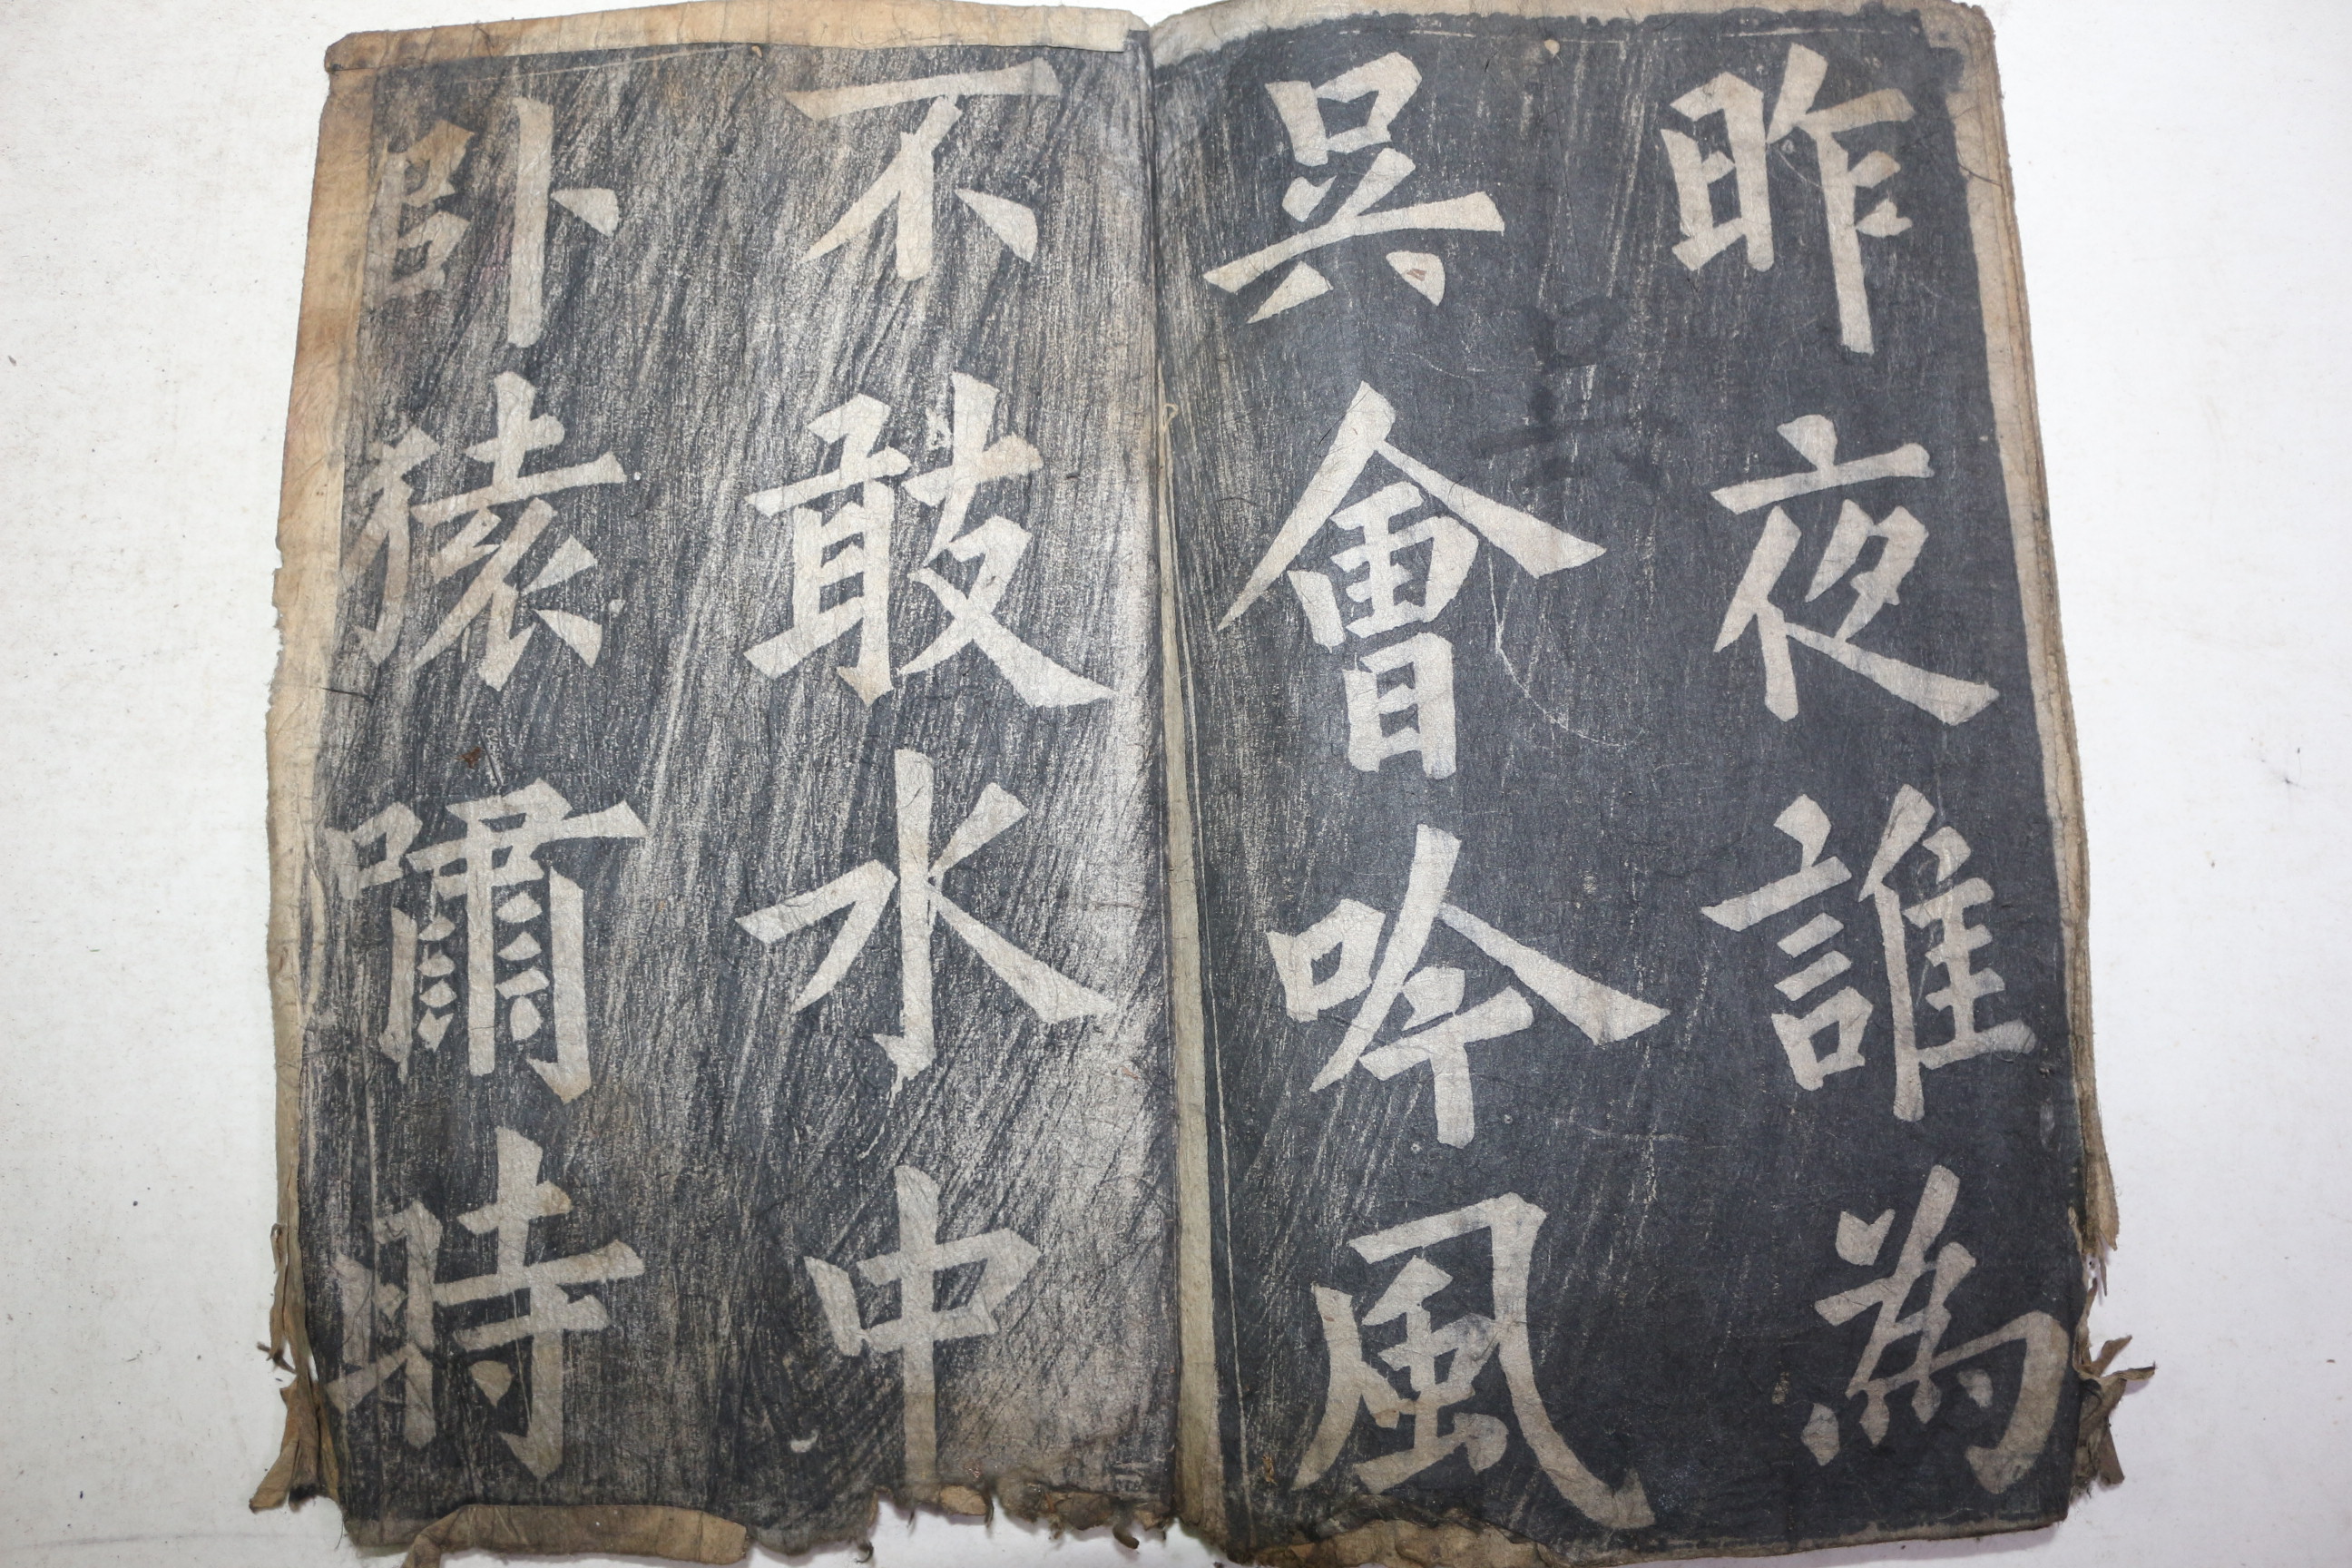 昨夜誰為
吳會吟風
不敢水中
臥猿嘯時